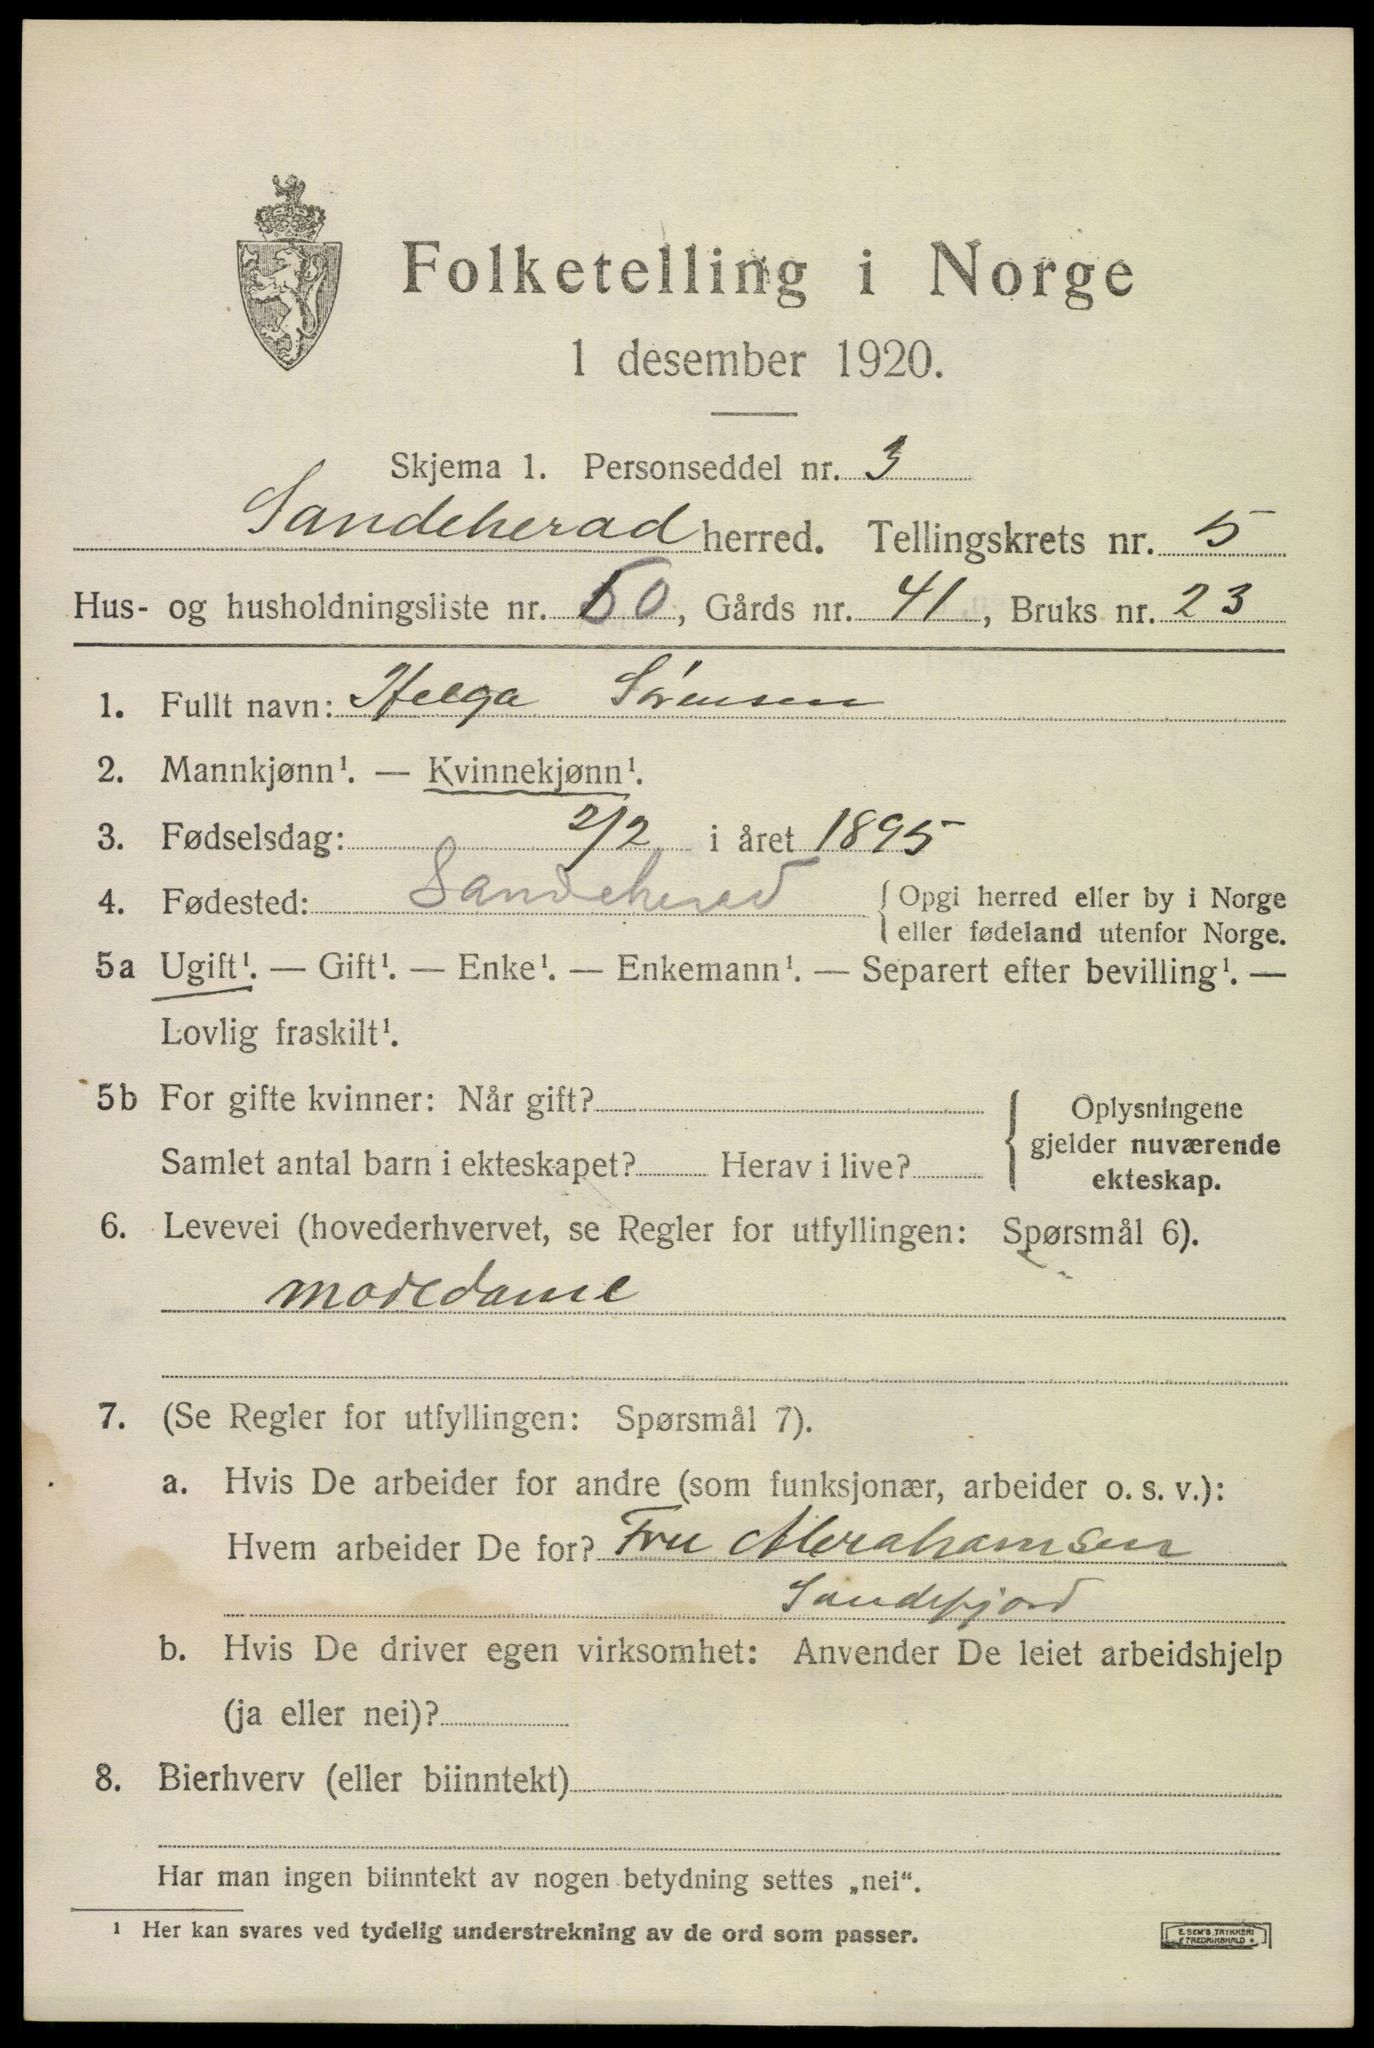 Folketelling i Norge
1 desember 1920.
Skjema 1. Personseddel nr. 3
Sandeherad herred. Tellingskrets nr. 5
Hus- og husholdningsliste nr. 50, Gårds nr. 41, Bruks nr. 23
1. Fullt navn: Helga Sørensen
2. Mannkjønn¹. — Kvinnekjønn¹.
3. Fødselsdag: 2/2 i året 1895
4. Fødested: Sandeherad { Opgi herred eller by i Norge
eller fødeland utenfor Norge.
5a Ugift¹. — Gift¹. — Enke¹. — Enkemann¹. — Separert efter bevilling¹. —
Lovlig fraskilt¹.
5b For gifte kvinner: Når gift? { Oplysningene
gjelder nuværende
Samlet antal barn i ekteskapet? Herav i live?
ekteskap.
6. Levevei (hovederhvervet, se Regler for utfyllingen: Spørsmål 6).
modedame
7. (Se Regler for utfyllingen: Spørsmål 7).
a. Hvis De arbeider for andre (som funksjonær, arbeider o. s. v.):
Hvem arbeider De for? Fru Abrahamsen
Sandefjord
b. Hvis De driver egen virksomhet: Anvender De leiet arbeidshjelp
(ja eller nei)?
8. Bierhverv (eller biinntekt)
Har man ingen biinntekt av nogen betydning settes „nei“.
¹ Her kan svares ved tydelig understrekning av de ord som passer.
E. SEM'S TRYKKERI
FREDRIKSHALD